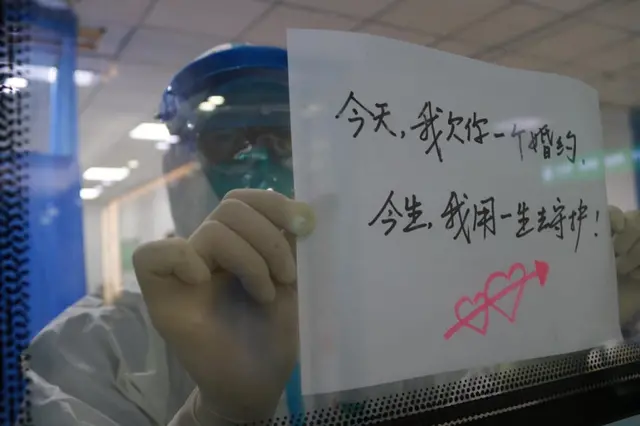 今天，我欠你一个婚约，
今生，我用一生去守护！